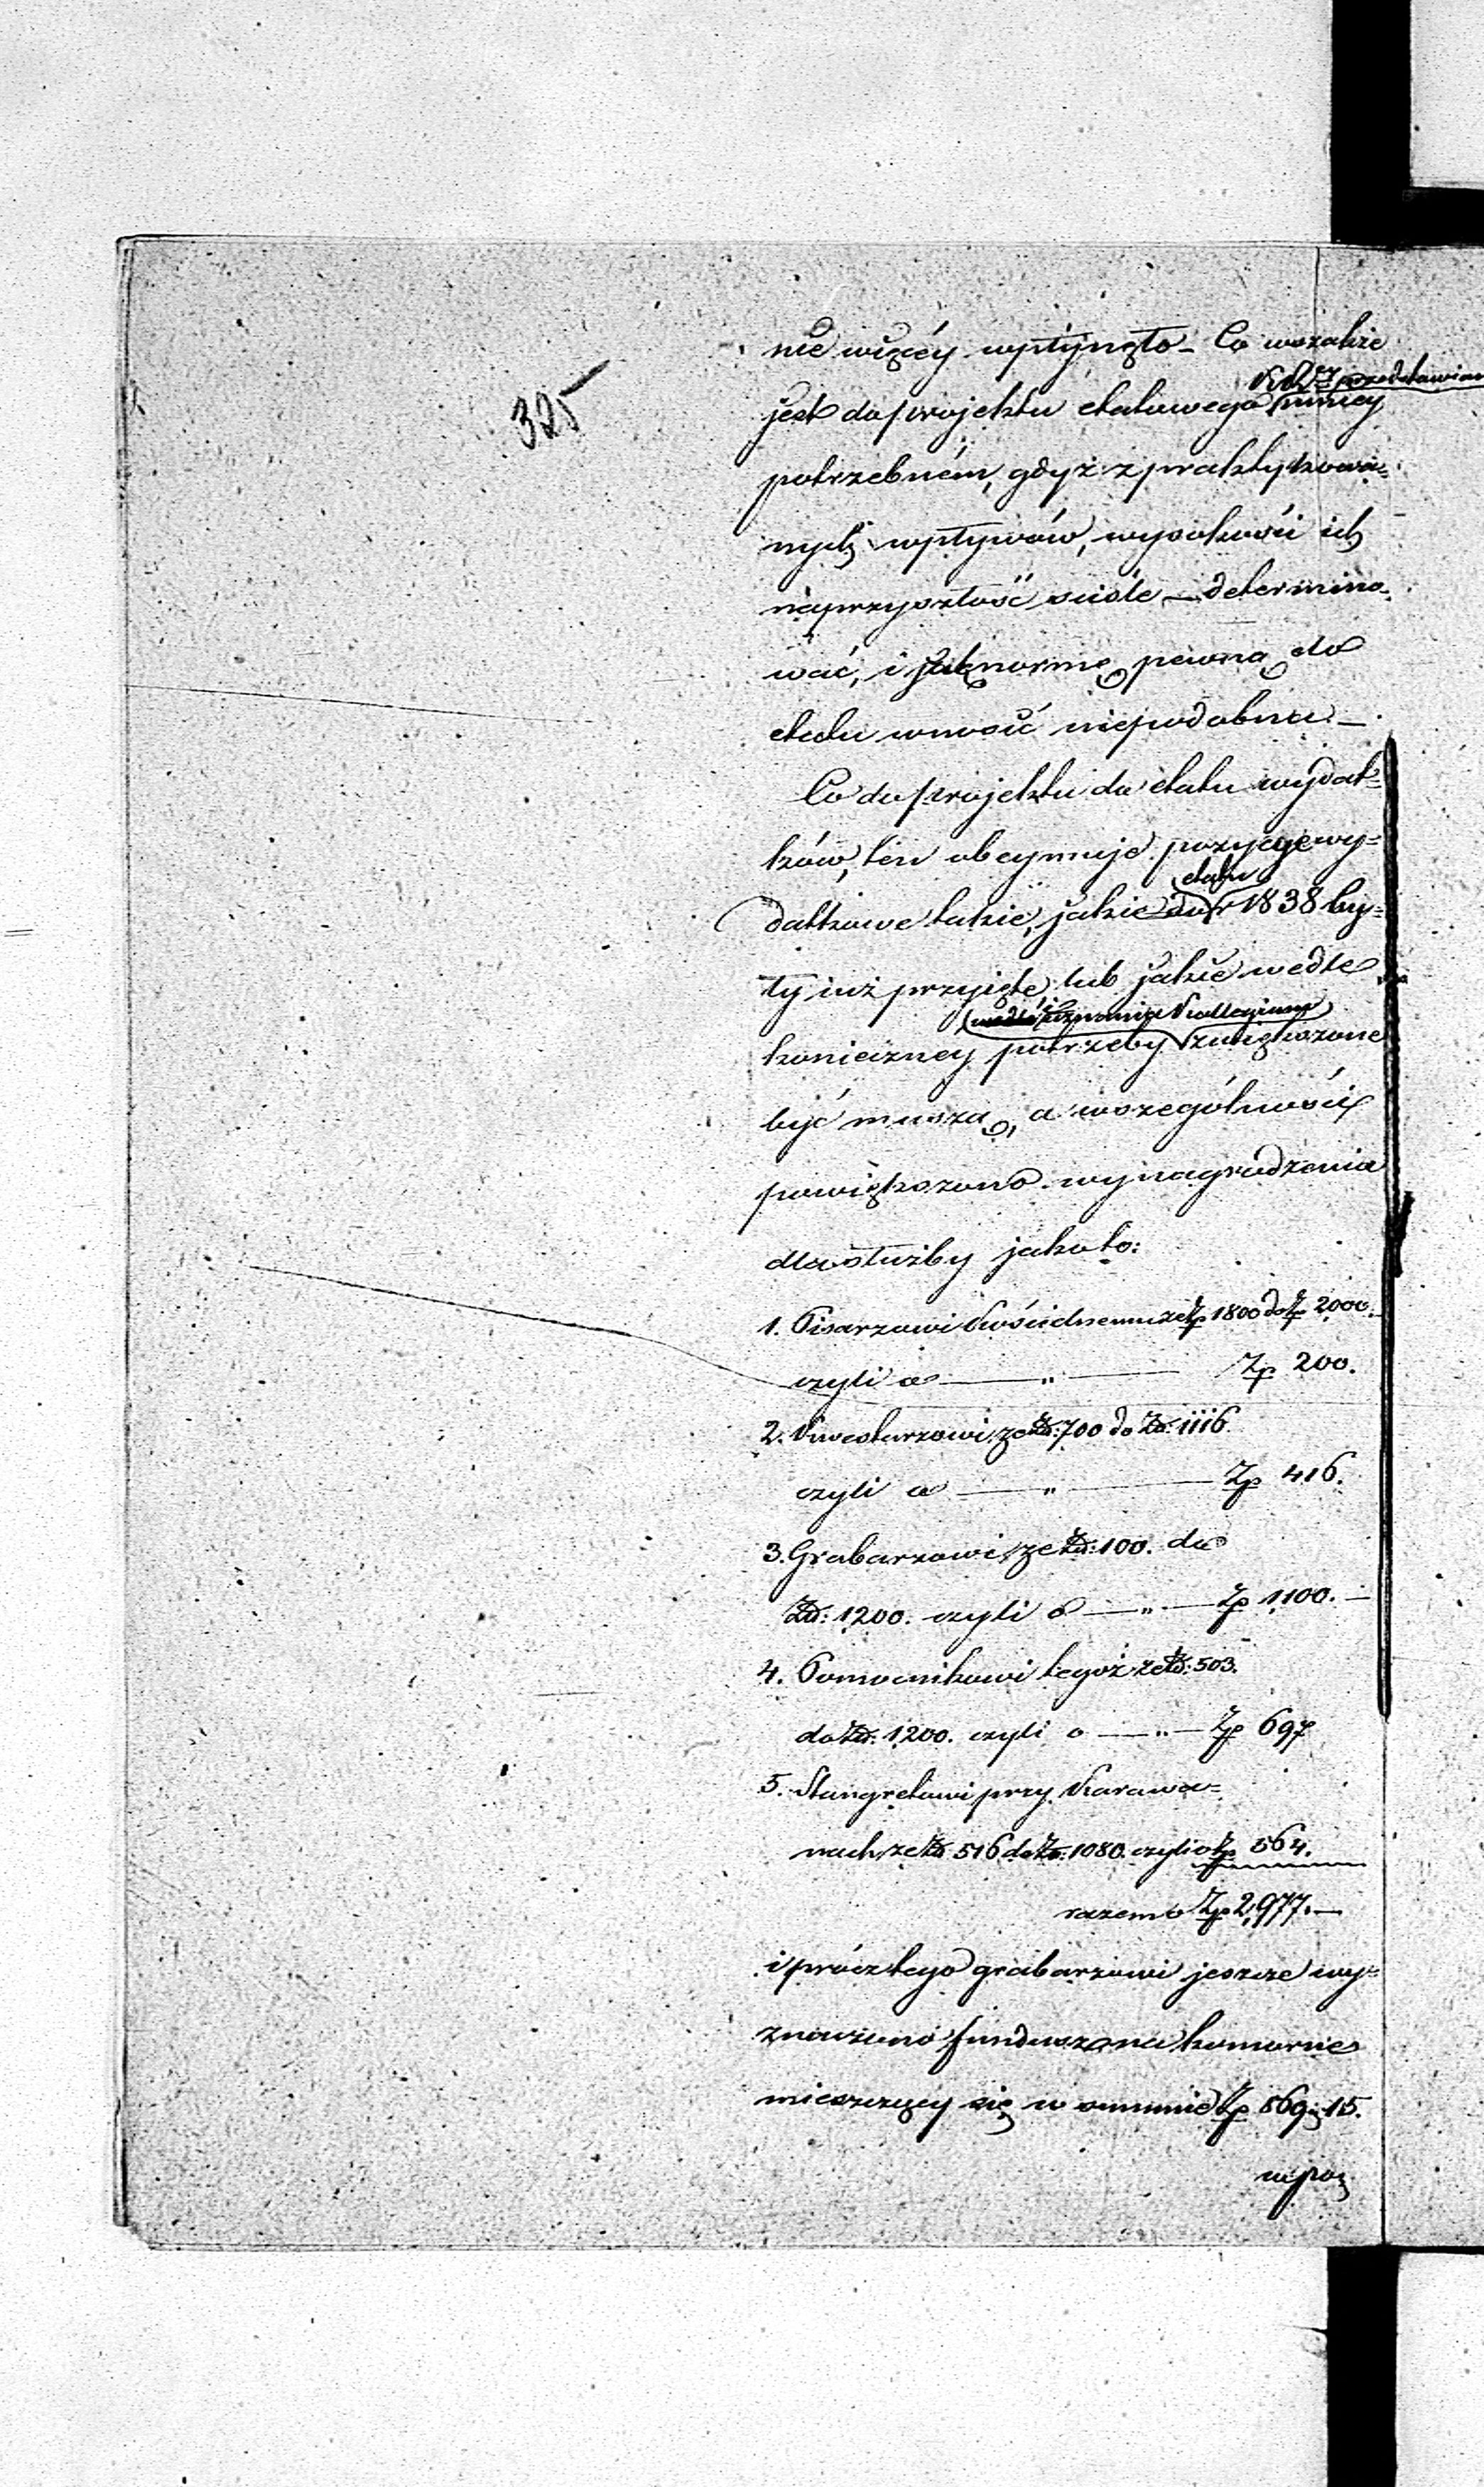 325
nie więcéy wpłynęło – Co wszakże
przedstawian
jest do projektu etatowego mniey
potrzebném, gdyż z praktykowa=
nych wpływów, wysokości ich
na przyszłość ściśle – determino=
wać, i jako normę pewną do
etatu wnosić niepodobna –
Co do projektu do etatu wydat=
ków, ten obeymuje pozycye wy=
etatu
datkowe takie, jakie do r 1838 by=
ły iuż przyięte lub jakie wedle
uznania Kollegium
konieczney potrzeby zwiększone
być muszą, a wszczególności
powiększono wynagrodzenia
dla służby jako to:
1. Pisarzowi Kościelnemu ze Zp 1800 do Zp 2000.
czyli o — " — Zp 200.
2. Kwestarzowi ze Zł: 700 do Zł: 1116.
czyli o — " — Zp 416.
3. Grabarzowi ze Zł: 100. do
Zł: 1200. czyli o — " — Zp 1100. –
4. Pomocnikowi tegoż ze Zł: 503.
do Zł: 1200. czyli o — " — Zp 697
5. Stangretowi przy Karawa=
nach ze Zł 516 do Zł: 1080. czyli o Zp 564.
razem o Zp 2,977. –
i prócz tego grabarzowi jeszcze wy=
znaczono fundusz na komorne
mieszczący się w summie Zp 569 g 15.
w poz